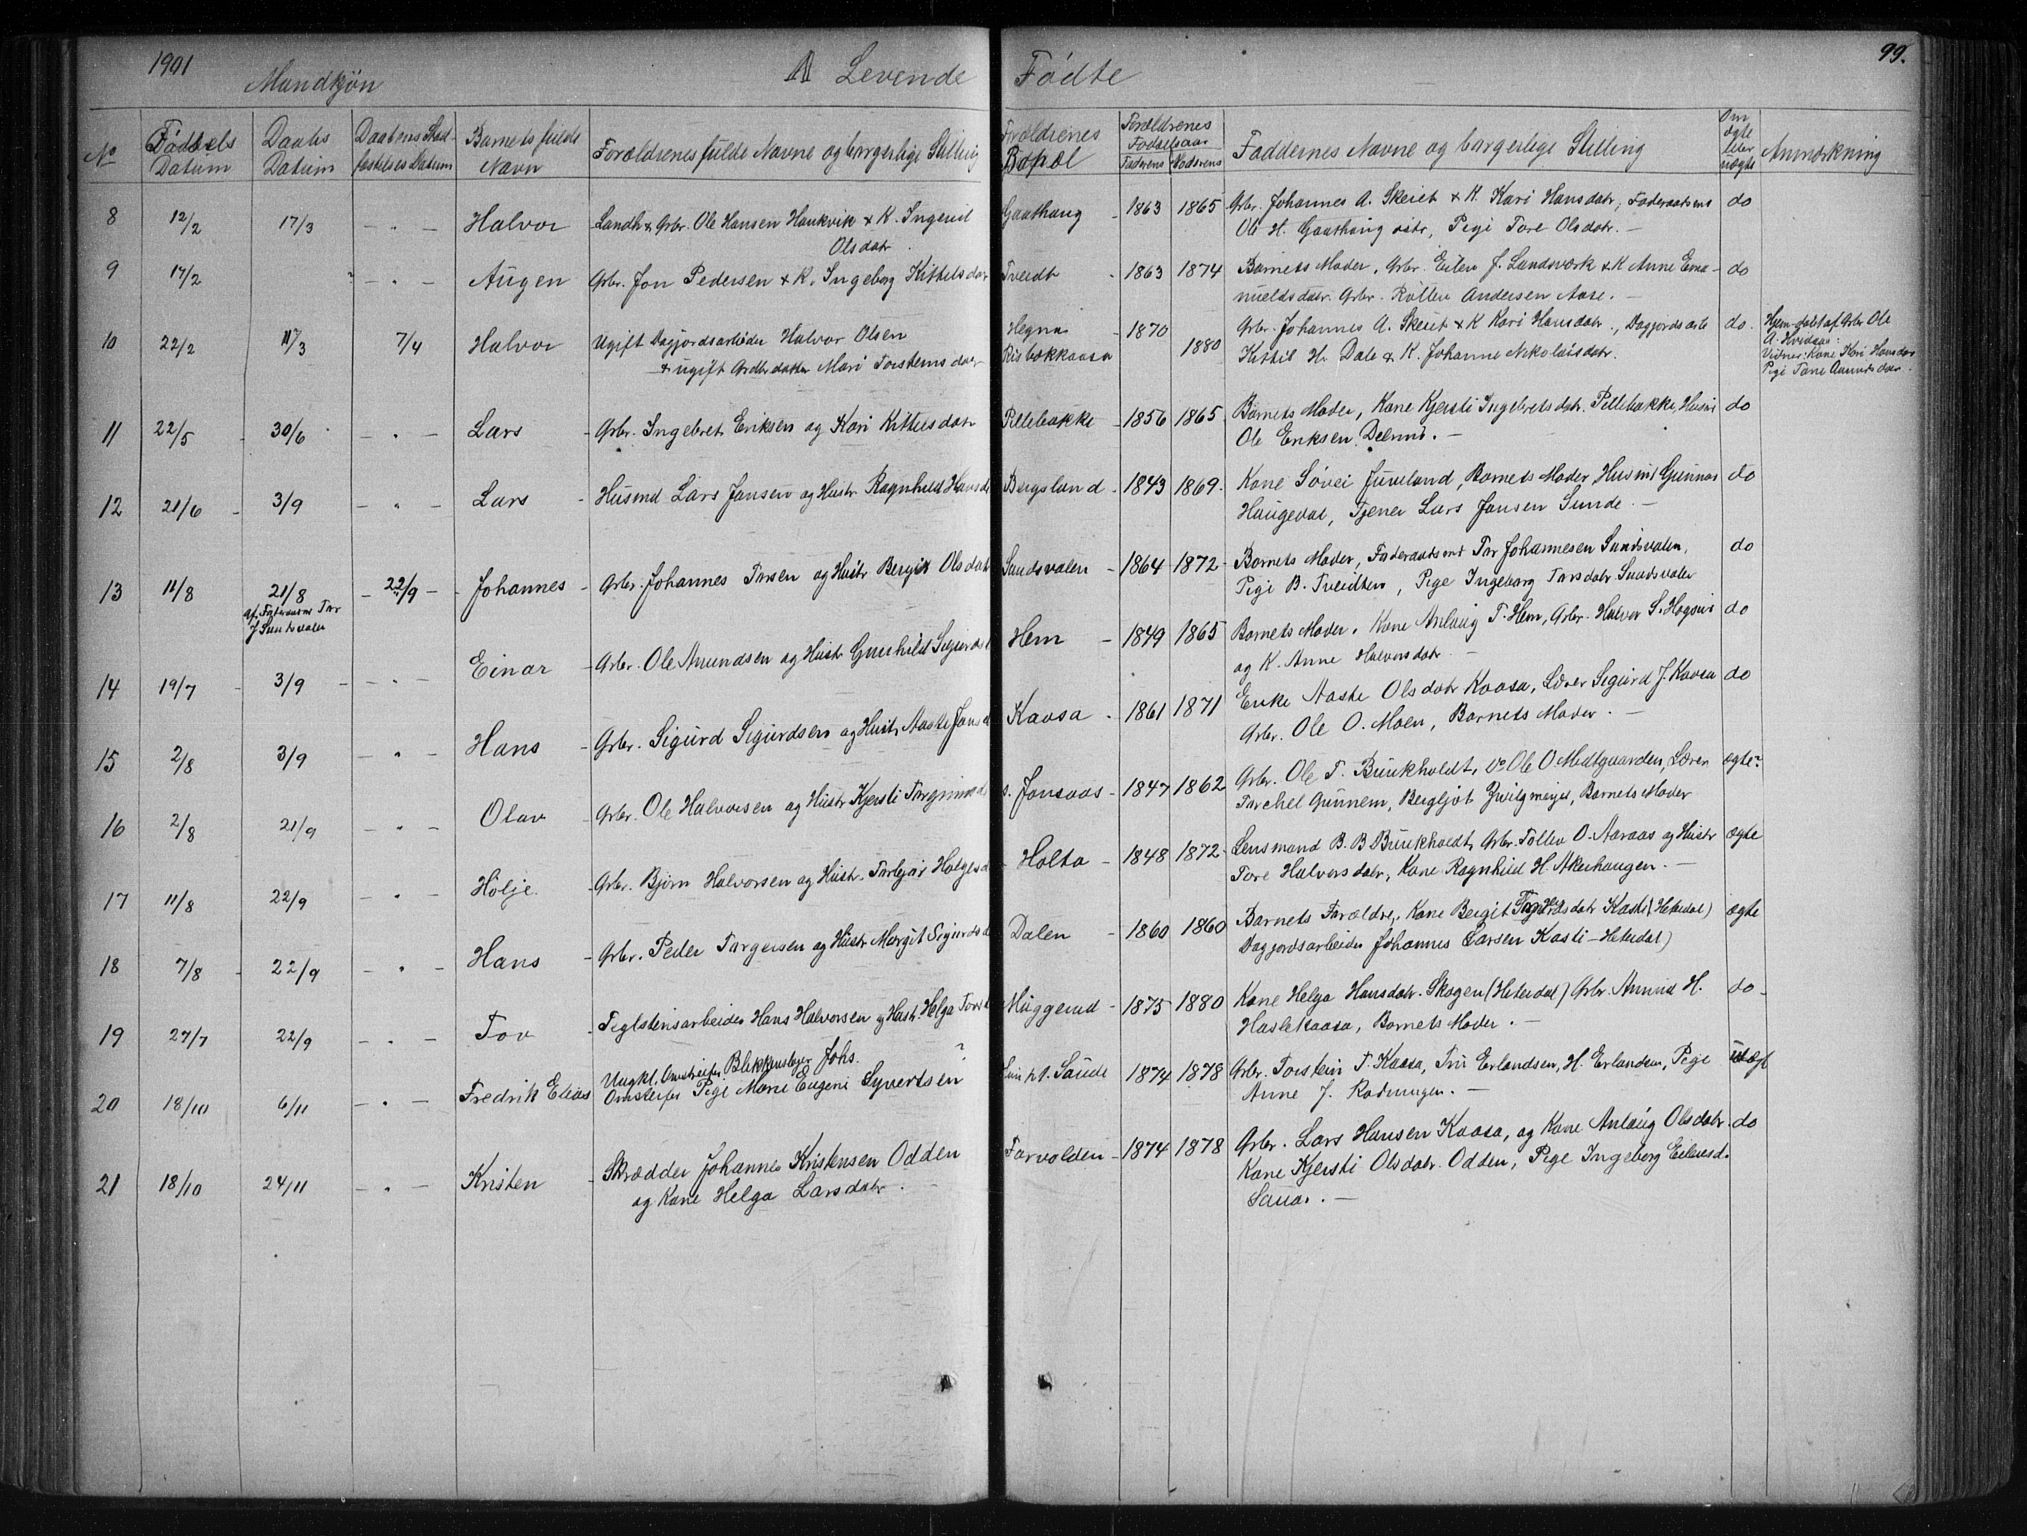 1901
Mandkjøn
A Levende Fødte
99.
No
Fødsels Datum
Daabs Datum
Daabens Stadfæstelses Datum
Barnets fulde Navn
Forældrenes fulde Navne og borgerlige Stilling
Forældrenes Bopæl
Forældrenes Fødselsaar
Faderens Moderens
Faddernes Navne og borgerlige Stilling
Om ægte eller uægte
Anmærkning
8 12/2 17/3 - " - Halvor Landh. & Grbr. Ole Hansen Haukvik & K. Ingerid Gaathaug 1863 1865 Grbr. Johannes A. Skeiet & K. Kari Hansdatr, Føderaadsmd do
Olsdatr. Ole H. Gaathaug østr, Pige Tore Olsdatr. -
9 17/2 - " - Augen Grbr. Jon Pedersen & K. Ingeborg Kittelsdatr Tveidt 1863 1874 Barnets Moder, Grbr. Eilev J. Landsværk & K Anne Ema- do
nuelsdatr. Grbr. Rollev Andersen Aase. -
10 22/2 11/3 7/4 Halvor Ugift Dagjordsarbeider Halvor Olsen Hegna 1870 Grbr. Johannes A. Skeiet & K Kari Hansdatr., Dagjordsarb. do. Hjemdøbt af Grbr Ole
& ugift Grdbr datter Mari Torstensdatr Risbækkaasa 1880 Kittil H. Dale & K. Johanne Nikolaisdatr. A. Hvedsaa.
Vidner: Kone Kari Hansdatr
Pige Tone Aamundsdatr.
11 22/5 30/6 - " - Lars Grbr. Ingebret Eriksen og Kari Kittilsdatr Pillebakke 1856 1865 Barnets Moder, Kone Kjersti Ingebretsdatr. Pillebakke, Husmd do
Ole Eriksen
12 21/6 3/9 - " - Lars Husmd Lars Jansen og Hustr Ragnhild Hansd Bergsland 1843 1869 Kone Søvei Juveland, Barnets Moder, Husmd Gunnar do
Haugedal, Tjener Lars Jansen Sunde. -
13 11/8 21/8 - 22/9 - Johannes Grbr. Johannes Torsen og Hustr Bergit Olsdatr Sundsvalen 1864 1872 Barnets Moder, Føderaadsmd Tor Johannesen Sundsvalen, do
af Føderaadsmd Tor J Sundsvalen
Pige B. Tveidten, Pige Ingeborg Torsdatr Sundsvalen
14 19/7 3/9 - " - Einar Grbr. Ole Amundsen og Hustr Gunhild Sigurdsd Hem 1849 1865 Barnets Moder, Kone Anlaug T. Hem, Grbr. Halvor S. Hogsni do
og K. Anne Halvorsdatr. -
15 2/8 3/9 - " - Hans Grbr. Sigurd Sigurdsen og Hustr Aaste Jansd Kaasa 1861 1871 Enke Aaste Olsdatr Kaasa, Lærer Sigurd J. Kaasa do
Grbr. Ole O. Moen, Barnets Moder. -
16 2/8 21/9 - " - Olav Grbr. Ole Halvorsen og Hustr Kjersti Torgrimsd s. Jonsaas 1847 1862 Grbr. Ole T. Bunkholdt, do Ole O Midtgaarden, Lærer ægte
Torchel Gunnem, Bergljot Zwilgmeyer, Barnets Moder
17 11/8 22/9 - " - Hølje Grbr. Bjørn Halvorsen og Hustr. Torbjør Holgesd Holta 1848 1872 Lensmand B. B Bunkholdt, Grbr. Tollev O. Aaraas og Hustr ægte
Tore Halvorsdatr, Kone Ragnhild H. Akerhaugen. -
18 7/8 22/9 - " - Hans Grbr. Peder Torgersen og Hustr Margit Sigurdsd Dalen 1860 1860 Barnets Forældre, Kone Bergit Sigurdsdatr Kasti (Heterdal) ægte
Dagjordsarbeider Johannes Larsen Kasti - Heterdal)
19 27/7 22/9 - " - Tov Teglstensarbeider Hans Halvorsen og Hustr. Helga Tovsd Muggerud 1875 1880 Kone Helga Hansdatr. Skogen (Heterdal) Grbr. Amund H. do
Haslekaasa, Barnets Moder. -
20 18/10 6/11 - " - Fredrik Elias Ungkl. Omstreifer Blikkenslager Johs. 1874 1878 Grbr. Torstein T. Kaasa, Fru Erlandsen, H. Erlandsen, Pige uægt
Omstreifer Pige Marie Eugeni Syvertsen Anne J. Rodningen. -
21 18/10 24/11 - " - Kristen Skrædder Johannes Kristensen Odden Farvolden 1874 1878 Grbr. Lars Hansen Kaasa, og Kone Anlaug Olsdatr do
og Kone Helga Larsdatr. Kone Kjersti Olsdatr. Odden, Pige Ingeborg Eilevsd.
Sauar. -